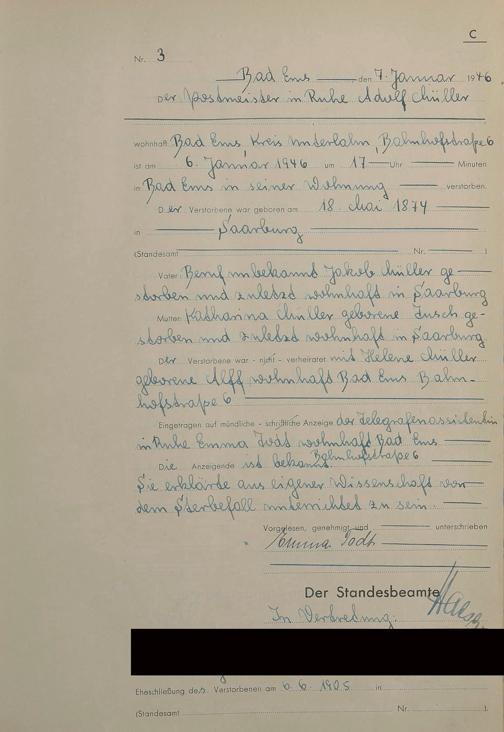 C
Nr. 3
Bad Ems den 7. Januar 1946
Der Postmeister in Ruhe Adolf Müller
wohnhaft Bad Ems, Kreis Unterlahn, Bahnhofstraße 6
ist am 6. Januar 1946 um 17 Uhr Minuten
in Bad Ems in seiner Wohnung verstorben.
Der Verstorbene war geboren am 18. Mai 1874
in Saarburg
(Standesamt Nr. )
Vater: Beruf unbekannt Jakob Müller ge-
storben und zuletzt wohnhaft in Saarburg
Mutter: Katharina Müller geborene Jusch ge-
storben und zuletzt wohnhaft in Saarburg
Der Verstorbene war - nicht - verheiratet mit Helene Müller
geborene Alff wohnhaft Bad Ems Bahn-
hofstraße 6
Eingetragen auf mündliche - schriftliche Anzeige der Telegrafenassistentin
in Ruhe Emma Todt wohnhaft Bad Ems
Bahnhofstraße 6
Die Anzeigende ist bekannt.
Sie erklärte aus eigener Wissenschaft von
dem Sterbefall unterrichtet zu sein.
Vorgelesen, genehmigt und unterschrieben
Emma Todt
Der Standesbeamte
In Vertretung:
Eheschließung des Verstorbenen am 6.6.1905 in
(Standesamt Nr. ).